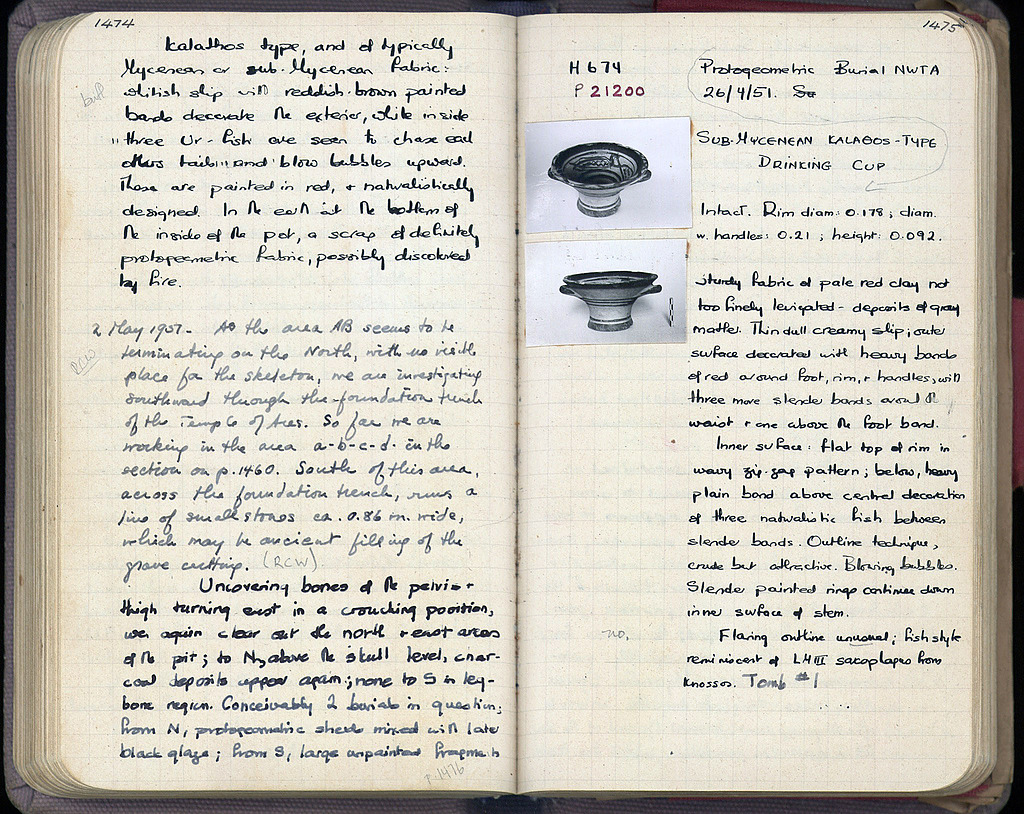 1474
kalathos type, and of typically
Mycenean or sub-Mycenean fabric:
whitish slip with reddish-brown painted
bands decorate the exterior, while inside
"three Ur-fish are seen to chase each
others tails" and blow bubbles upward.
These are painted in red, + naturalistically
designed. In the earth at the bottom of
the inside of the pot, a scrap of definitely
protogeometric fabric, possibly discolored
by fire.
2 May 1951. As the area AB seems to be
RCW
terminating on the North, with no visible
place for the skeleton, we are investigating
southward through the foundation trench
of the Temple of Ares. So far we are
working in the area a-b-c-d in the
section on p. 1460. South of this area,
across the foundation trench, runs a
line of small stones ca. 0.86 m. wide,
which may be ancient filling of the
grave cutting. (RCW)
Uncovering bones of the pelvis +
thigh turning east in a crouching position,
we again clear out the north + east areas
of the pit; to N, above the skull level, char-
coal deposits appear again; none to S in leg-
bone region. Conceivably 2 burials in question;
from N, protogeometric sherds mixed with late
black glaze; from S, large unpainted fragments
p. 1476
1475
H 674
P 21200
Protogeometric Burial NWTA
26/4/51.
SUB-MYCENEAN KALAGOS-TYPE
DRINKING CUP
Intact. Rim diam: 0.178; diam.
w. handles: 0.21; height: 0.092.
Sturdy fabric of pale red clay not
too finely levigated - deposits of gray
matter. Thin dull creamy slip; outer
surface decorated with heavy bands
of red around foot, rim, + handles, with
three more slender bands around the
waist + one above the foot band.
Inner surface: flat top of rim in
wavy zig-zag pattern; below, heavy
plain band above central decoration
of three naturalistic fish between
slender bands. Outline technique,
crude but attractive. Blowing bubbles.
Slender painted rings continue down
inner surface of stem.
no.
Flaring outline unusual; fish style
reminiscent of LH III sarcophagos from
Knossos. Tomb #1